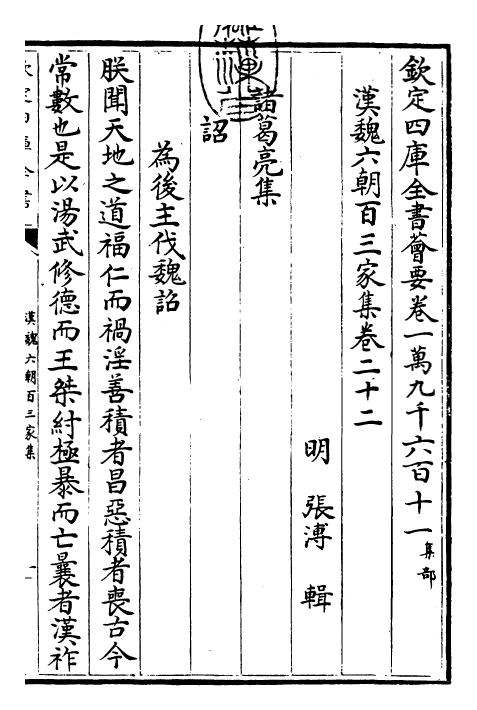 欽定四庫全書薈要卷一萬九千六百十一集部
漢魏六朝百三家集卷二十二
明 張溥 輯
諸葛亮集
詔
為後主伐魏詔
朕聞天地之道福仁而禍淫善積者昌惡積者喪古今
常數也是以湯武修德而王桀紂極暴而亡曩者漢祚
欽定四庫全書
漢魏六朝百三家集
一